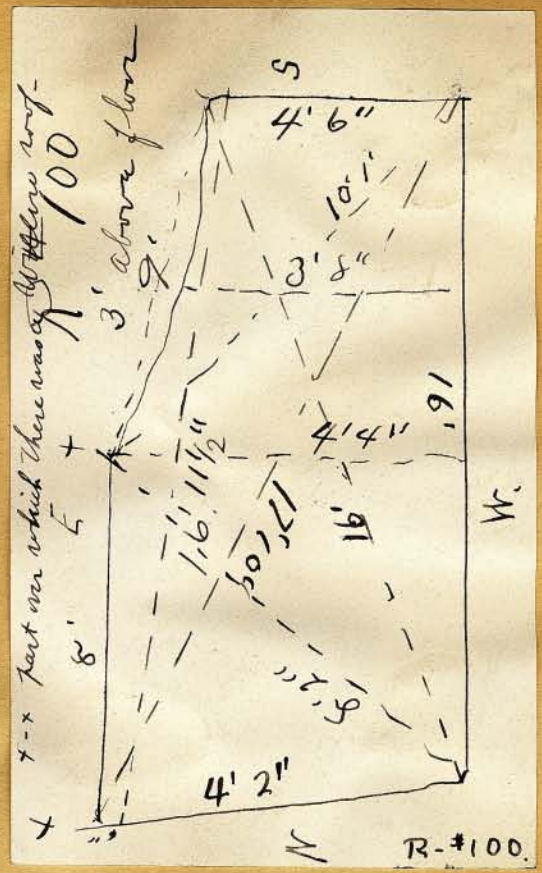 x - x part over which there was a roof -
100
3' above floor
X
E
+
8'
9'
S
4' 6"
10' 1'
3' 8"
4' 4"
16'
W.
1,6' 11 1/2"
17' 10"
16'
8' 2"
4' 2"
N
R-#100.